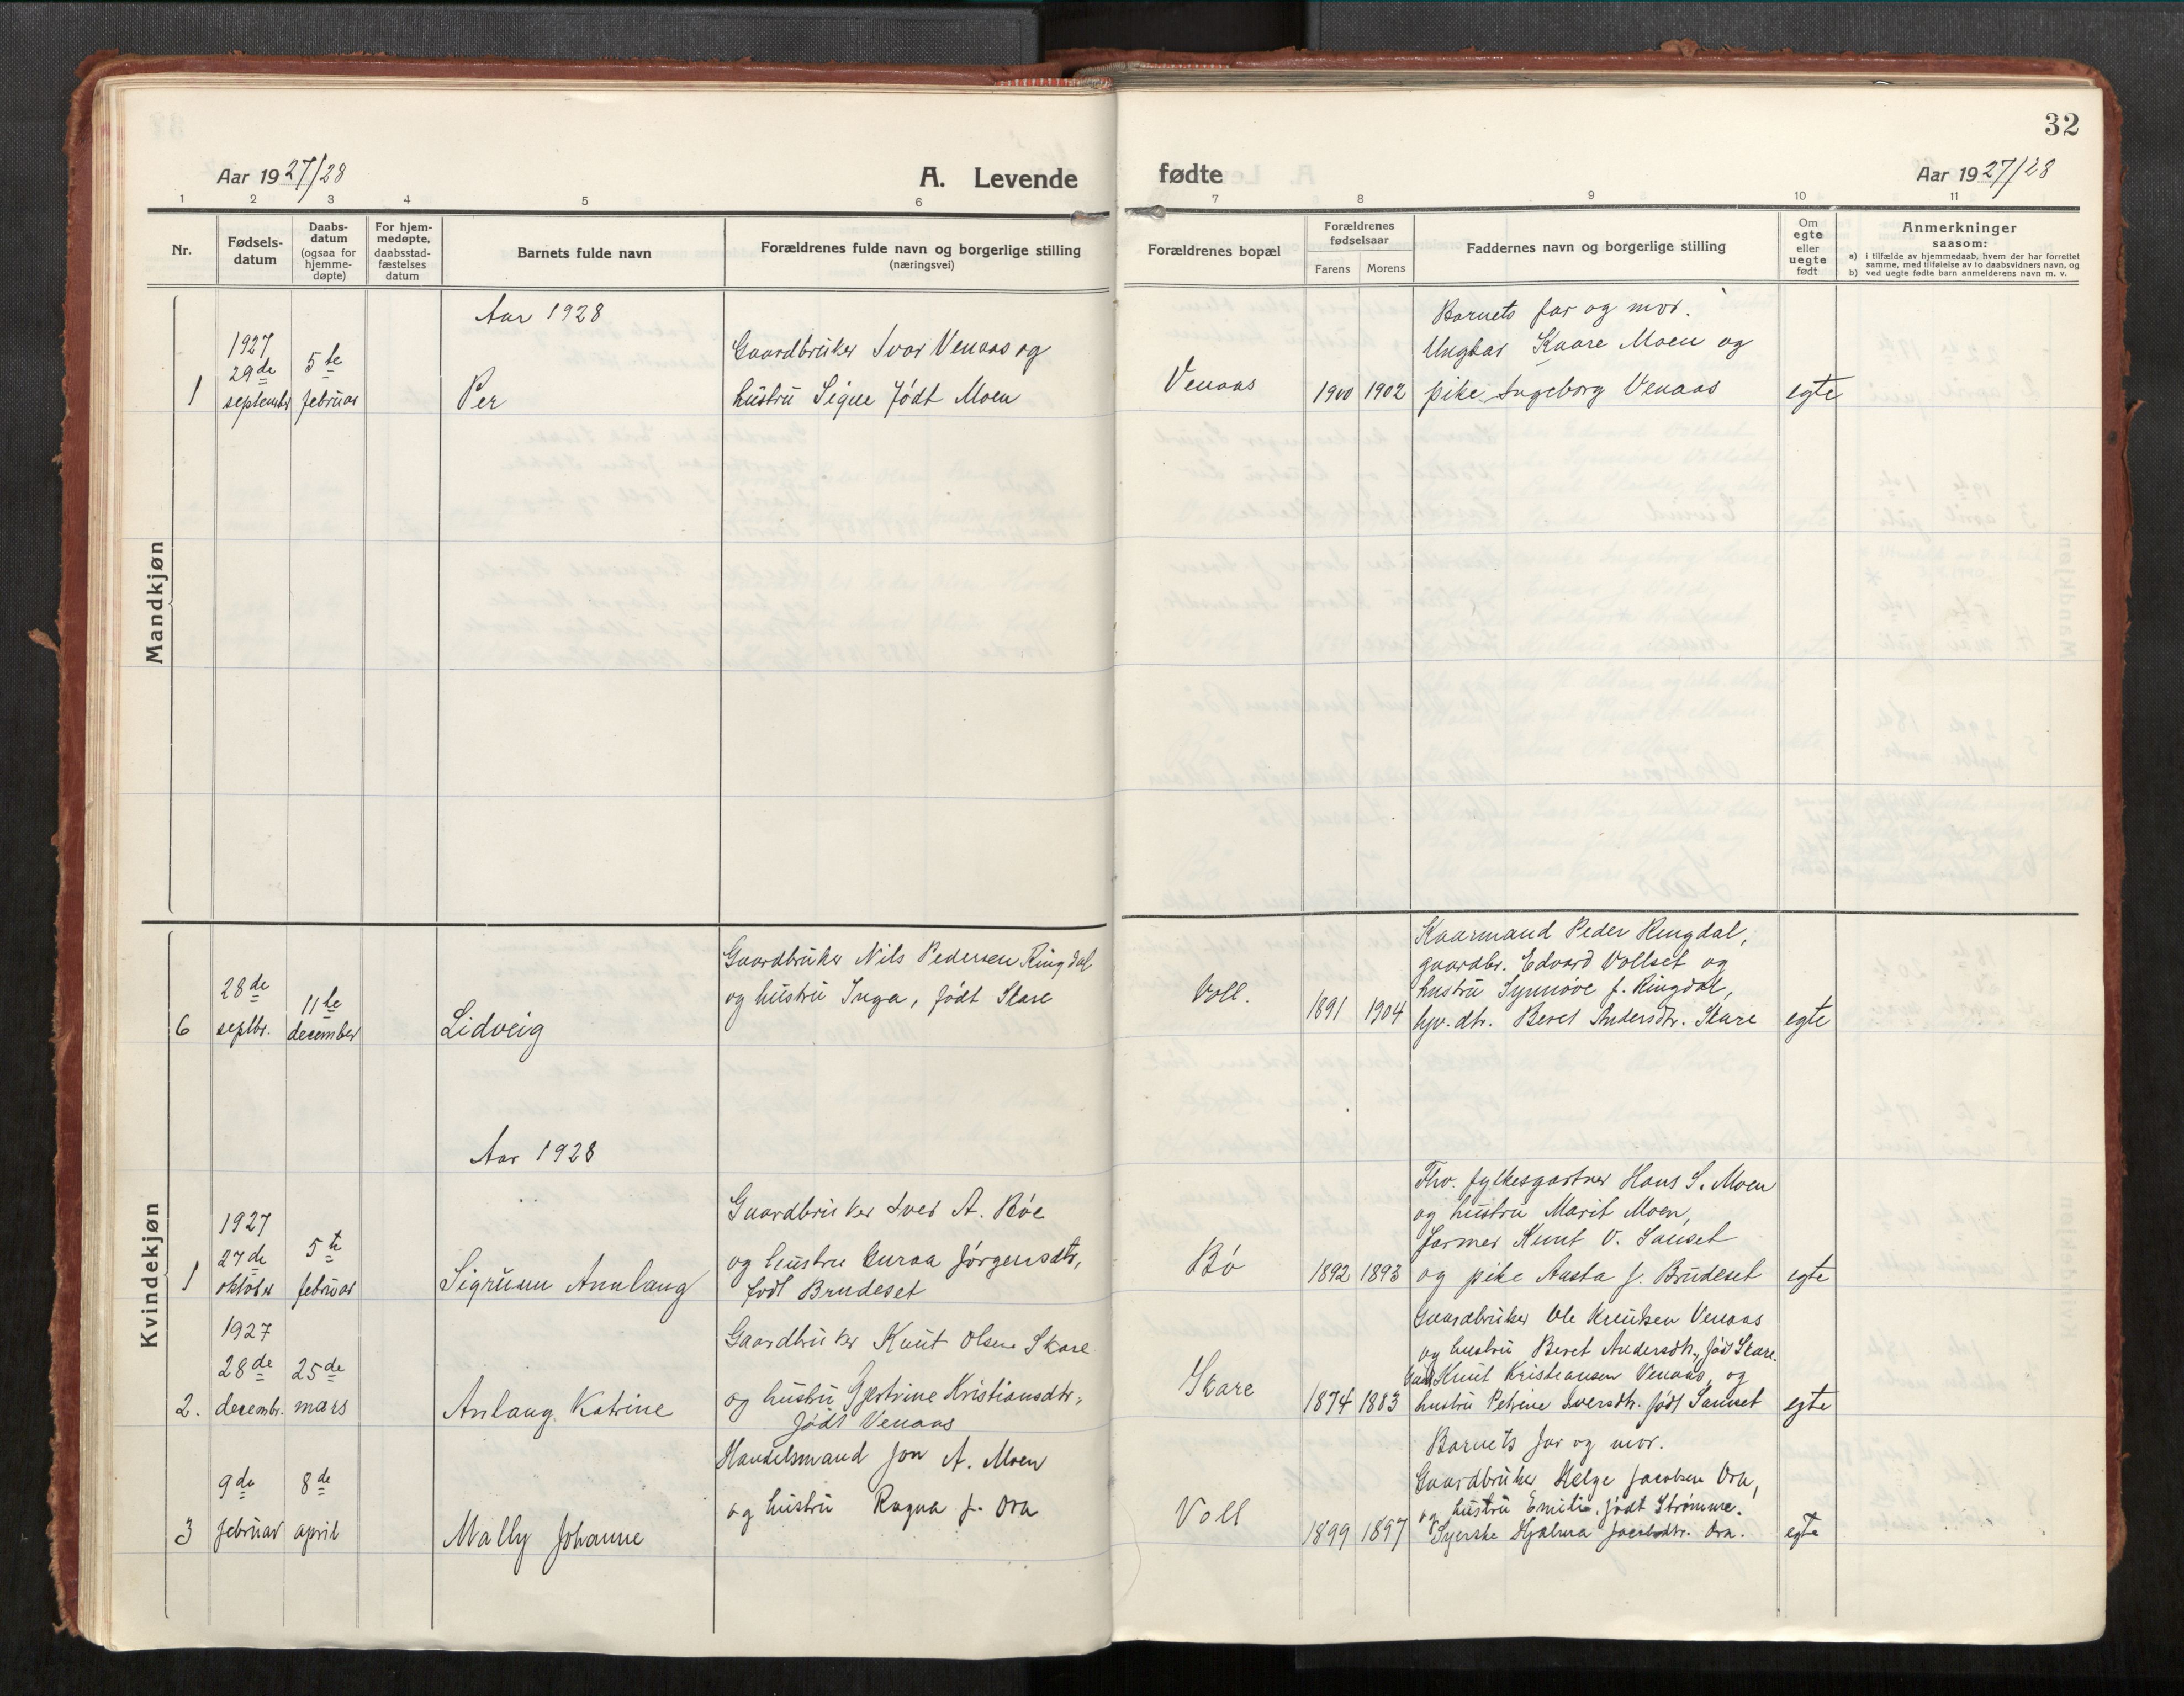 32
Aar 1927/28
A. Levende
fødte
Aar 1927/28
1 2 3 4 5 6 7 8 9 10 11
Nr.
Fødsels-
datum
Daabs-
datum
(ogsaa for
hjemme-
døpte)
For hjem-
medøpte,
daabsstad-
fæstelses
datum
Barnets fulde navn
Forældrenes fulde navn og borgerlige stilling
(næringsvei)
Forældrenes bopæl
Forældrenes
fødselsaar
Farens Morens
Faddernes navn og borgerlige stilling
Om
egte
eller
uegte
født
Anmerkninger
saasom:
a) i tilfælde av hjemmedaab, hvem der har forrettet
samme, med tilføielse av to daabsvidners navn, og
b) ved uegte fødte barn anmelderens navn m. v.
Mandkjøn
Aar 1928
1
1927
29de
september
5te
februar
Per
Gaardbruker Ivar Venaas og
hustru Signe født Moen
Venaas
1900 1902
Barnets far og mor.
Ungkar Kaare Moen og
pike Ingeborg Venaas
egte
Kvindekjøn
6
28de
septbr.
11te
december
Lidveig
Gaardbruker Nils Pedersen Ringdal
og hustru Inga, født Skare
Voll.
1891 1904
Kaarmand Peder Ringdal,
gaardbr. Edvard Vollset og
hustru Synnøve f. Ringdal,
gv. dtr. Beret Andersdtr. Skare
egte
Aar 1928
1
1927
27de
oktober
5te
februar
Sigrunn Annlaug
Gaardbruker Iver A. Bøe
og hustru Guraa Jørgensdtr,
født Brudeset
Bø
1892 1893
Fhv. fylkesgartner Hans S. Moen
og hustru Marit Moen,
farmer Knut O. Sanset
og pike Aasta J. Brudeset
egte
2.
1927
28de
decembr.
25de
mars
Anlaug Katrine
Gaardbruker Knut Olsen Skare
og hustru Gjertrine Kristiansdtr.
født Venaas
Skare
1874 1883
Gaardbruker Ole Knutsen Venaas
og hustru Beret Andersdtr., født Skare.
Knut Kristiansen Venaas, og
hustru Petrine Iversdtr. født Sanset
egte
3
9de
februar
8de
april
Mally Johanne
Handelsmand Jon A. Moen
og hustru Ragna f. Ora
Voll
1899 1897
Barnets far og mor.
Gaardbruker Helge Jacobsen Ora,
og hustru Emilie født Strømme.
Syerske Hjalma Jacobsdtr. Ora.
egte